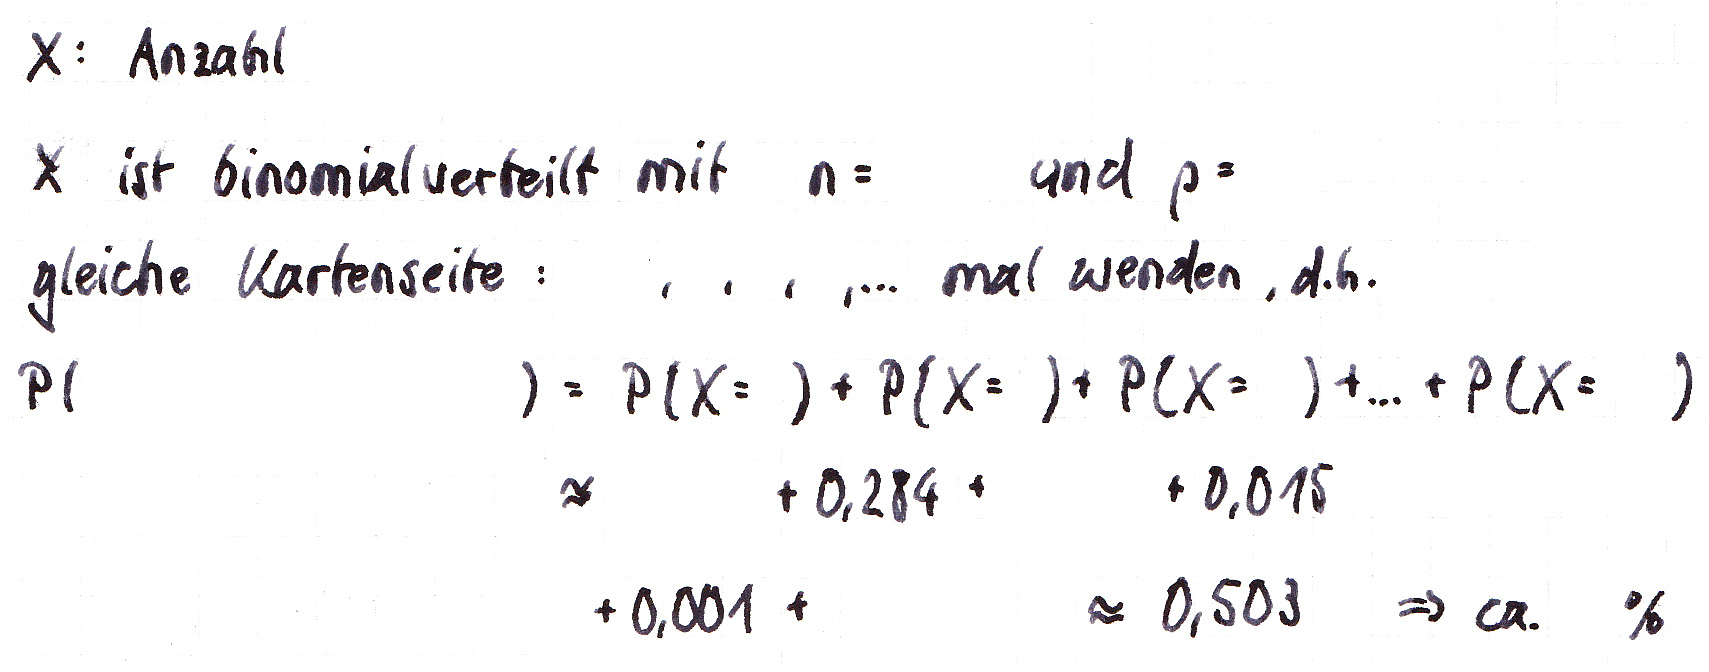 X: Anzahl
X ist binomialverteilt mit n= und p=
gleiche Kartenseite: , , , ,... mal wenden, d.h.
P( ) = P(X= ) + P(X= ) + P(X= ) +...+ P(X= )
≈ + 0,284 + + 0,015
+ 0,001 + ≈ 0,503 ⇒ ca. %